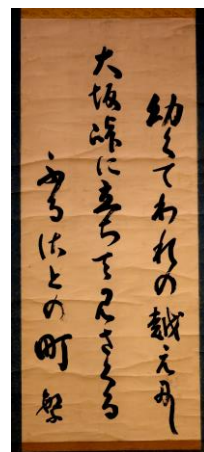 幼くてわれの越えにし
大坂峠に立ちて見さくる
ふる佐との町